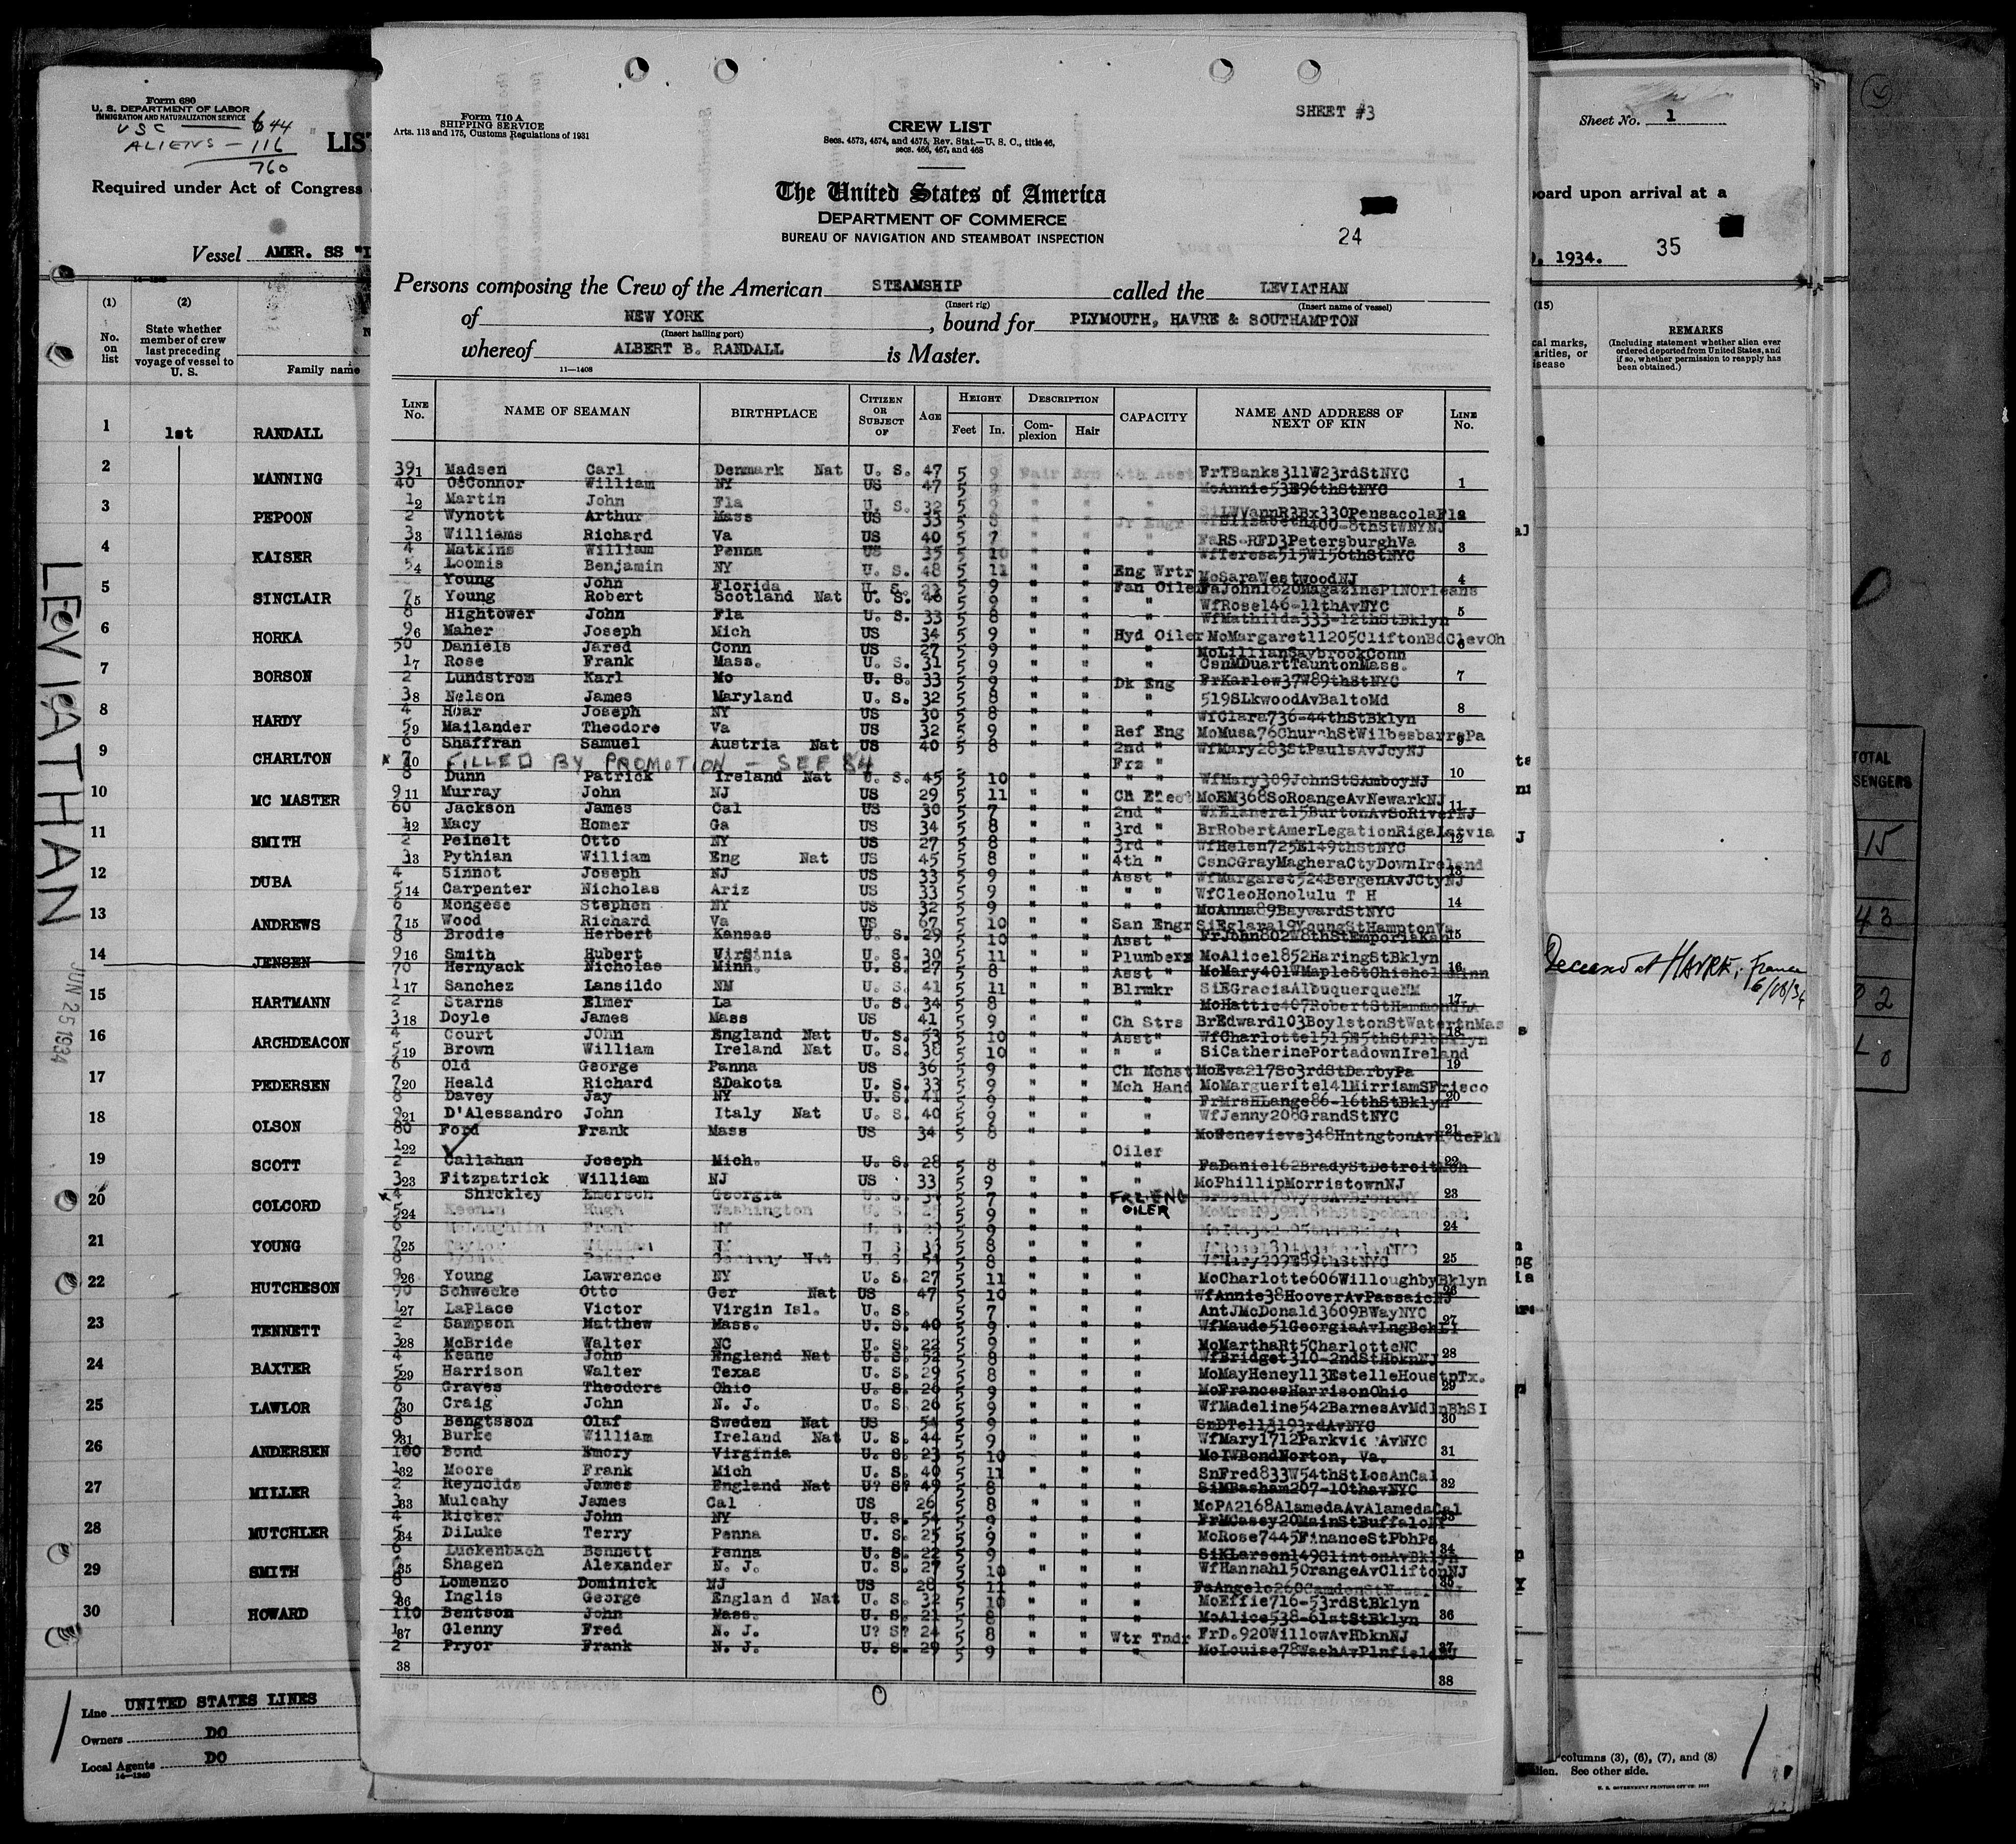 Form 680
U. S. DEPARTMENT OF LABOR
IMMIGRATION AND NATURALIZATION SERVICE
USC — 644
ALIENS — 116
760
LIS
Required under Act of Congress
Vessel AMER. SS "L
(1) (2)
No. on list
State whether member of crew last preceding voyage of vessel to U. S.
Family name
1 1st RANDALL
2 MANNING
3 PEPOON
4 KAISER
5 SINCLAIR
6 HORKA
7 BORSON
8 HARDY
9 CHARLTON
10 MC MASTER
11 SMITH
12 DUBA
13 ANDREWS
14 JENSEN
15 HARTMANN
16 ARCHDEACON
17 PEDERSEN
18 OLSON
19 SCOTT
20 COLCORD
21 YOUNG
22 HUTCHESON
23 TENNETT
24 BAXTER
25 LAWLOR
26 ANDERSEN
27 MILLER
28 MUTCHLER
29 SMITH
30 HOWARD
LEVIATHAN
JUN 25 1934
Line UNITED STATES LINES
Owners DO
Local Agents DO
14—1240
Form 710 A
SHIPPING SERVICE
Arts. 113 and 175, Customs Regulations of 1931
SHEET #3
CREW LIST
Secs. 4573, 4574, and 4575, Rev. Stat.—U. S. C., title 46,
secs. 466, 467, and 468
The United States of America
DEPARTMENT OF COMMERCE
BUREAU OF NAVIGATION AND STEAMBOAT INSPECTION
24
Persons composing the Crew of the American STEAMSHIP called the LEVIATHAN
(Insert rig) (Insert name of vessel)
of NEW YORK, bound for PLYMOUTH, HAVRE & SOUTHAMPTON
(Insert hailing port)
whereof ALBERT B. RANDALL is Master.
11—1408
LINE No. NAME OF SEAMAN BIRTHPLACE CITIZEN OR SUBJECT OF AGE HEIGHT Feet In. DESCRIPTION Complexion Hair CAPACITY NAME AND ADDRESS OF NEXT OF KIN LINE No.
39 1 Madsen Carl Denmark Nat U. S. 47 5 9 Fair Brn 4th Asst FrTBanks311W23rdStNYC 1
40 O'Connor William NY US 47 5 9 " " " McAnnie53E96thStNYC
1 2 Martin John Fla U. S. 32 5 9 " " " SiLWVannR3Bx330PensacolaFla 2
2 Wynott Arthur Mass US 33 5 8 " " Jr Engr WfElizabeth400-8thStWNYNJ
3 3 Williams Richard Va US 40 5 7 " " " FaRS-RFD3PetersburghVa 3
4 Matkins William Penna US 35 5 10 " " " WfTeresa515W156thStNYC
5 4 Loomis Benjamin NY U. S. 48 5 11 " " Eng Wrtr MoSaraWestwoodNJ 4
Young John Florida U. S. 5 9 " " Fan Oiler FaJohn1820MagazinePlNOrleans
7 5 Young Robert Scotland Nat U. S. 46 5 9 " " " WfRose146-11thAvNYC 5
8 Hightower John Fla U. S. 33 5 8 " " " WfMathilda333-12thStBklyn
9 6 Maher Joseph Mich US 34 5 9 " " Hyd Oiler MoMargaret11205CliftonBdClevOh 6
50 Daniels Jared Conn US 27 5 9 " " " MoLillianSaybrookConn
1 7 Rose Frank Mass. U. S. 31 5 9 " " " CsnMDuartTauntonMass. 7
2 Lundstrom Karl Mo U. S. 33 5 9 " " Dk Eng FrKarlow37W89thStNYC
3 8 Nelson James Maryland U. S. 32 5 8 " " " 519SLkwoodAvBaltoMd 8
4 Hoar Joseph NY US 30 5 8 " " " WfClara736-44thStBklyn
5 9 Mailander Theodore Va US 32 5 9 " " Ref Eng MoMusa76ChurchStWilbesbarrePa 9
6 Shaffran Samuel Austria Nat US 40 5 8 " " 2nd " WfMary283StPaulsAvJcyNJ
x 7 10 FILLED BY PROMOTION — SEE 84 Frz " 10
8 Dunn Patrick Ireland Nat U. S. 45 5 10 " " " " WfMary309JohnStSAmboyNJ
9 11 Murray John NJ US 29 5 11 " " Ch Elect MoEM368SoRoangeAvNewarkNJ 11
60 Jackson James Cal US 30 5 7 " " 2nd " WfElanera15BurtonAvSoRiverNJ
1 12 Macy Homer Ga US 34 5 8 " " 3rd " BrRobertAmerLegationRigaLatvia 12
2 Peinelt Otto NY US 27 5 8 " " 3rd " WfHelen725E149thStNYC
3 13 Pythian William Eng Nat US 45 5 8 " " 4th " CsnCGrayMagheraCtyDownIreland 13
4 Sinnot Joseph NJ US 33 5 9 " " Asst " WfMargaret524BergenAvJCtyNJ
5 14 Carpenter Nicholas Ariz US 33 5 9 " " " " WfCleoHonolulu T H 14
6 Mongese Stephen NY US 32 5 9 " " " " MoAnna89BaywardStNYC
7 15 Wood Richard Va US 67 5 10 " " San Engr SiEglara19YoungStHamptonVa 15
8 Brodie Herbert Kansas U. S. 29 5 10 " " Asst " FrJohn802W8thStEmporiaKan
9 16 Smith Hubert Virginia U. S. 30 5 11 " " Plumberx MoAlice1852HaringStBklyn 16
70 Hernyack Nicholas Minn. U. S. 27 5 8 " " Asst " MoMary401WMapleStChisholMinn
1 17 Sanchez Lansildo NM U. S. 41 5 11 " " Blrmkr SiEGraciaAlbuquerqueNM 17
2 Starns Elmer La U. S. 34 5 8 " " " MoHattie407RobertStHammondLA
3 18 Doyle James Mass US 41 5 9 " " Ch Strs BrEdward103BoylstonStWatertnMas 18
4 Court JOhn England Nat U. S. 53 5 10 " " Asst" WfCharlotte1515E5thStFlbBklyn
5 19 Brown William Ireland Nat U. S. 38 5 10 " " " " SiCatherinePortadownIreland 19
6 Old George Panna US 36 5 9 " " Ch Mchst MoEva217So3rdStDarbyPa
7 20 Heald Richard SDakota U. S. 33 5 9 " " Mch Hand MoMarguerite141MirriamSFrisco 20
8 Davey Jay NY U. S. 41 5 9 " " " FrMrsHLange86-16thStBklyn
9 21 D'Alessandro John Italy Nat U. S. 40 5 9 " " " WfJenny208GrandStNYC 21
80 Ford Frank Mass US 34 5 8 " " " MoGenevieve348HntngtonAvHydePkM
1 22 Oiler 22
2 Callahan Joseph Mich. U. S. 28 5 8 " " " FaDaniel62BradyStDetroitMch
3 23 Fitzpatrick William NJ US 33 5 9 " " " MoPhillipMorristownNJ 23
x 4 Shickley Emerson Georgia U. S. 5 7 " " FRZ. ENG
5 24 Keenan Hugh Washington U. S. 25 5 9 " " OILER MoMrsH939E18thStSpokaneWash 24
6 McLaughlin Frank NY U. S. 29 5 9 " " "
7 25 Taylor William NY U S 5 8 " " " 25
8 Peter Germany Nat U. S. 54 5 8 " " " WfMary209E89thStNYC
9 26 Young Lawrence NY U. S. 27 5 11 " " " MoCharlotte606WilloughbyBklyn 26
90 Schwecke Otto Ger Nat US 47 5 10 " " " WfAnnie38HooverAvPassaicNJ
1 27 LaPlace Victor Virgin Isl. U. S. 5 7 " " " AntJMcDonald3609BWayNYC 27
2 Sampson Matthew Mass. U. S. 40 5 9 " " " WfMaude51GeorgiaAvLngBchLI
3 28 McBride Walter NC U. S. 22 5 9 " " " MoMarthaRt5CharlotteNC 28
4 Keane John England Nat U. S. 52 5 8 " " " WfBridget310-2ndStHbknNJ
5 29 Harrison Walter Texas U. S. 29 5 8 " " " MoMayHeney113EstelleHoustnTx. 29
6 Graves Theodore Ohio U. S. 26 5 9 " " " MoFrancesHarrisonOhio
7 30 Craig John N. J. U. S. 26 5 9 " " " WfMadeline542BarnesAvMdlnBhSI 30
8 Bengtsson Olaf Sweden Nat US 54 5 9 " " " SnDTell4193rdAvNYC
9 31 Burke William Ireland Nat U. S. 44 5 9 " " " WfMary1712Parkvie AvNYC 31
100 Bond Emory Virginia U. S. 23 5 10 " " " MoIWBondNorton, Va.
1 32 Moore Frank Mich U. S. 40 5 11 " " " SnFred833W54thStLosAnCal 32
2 Reynolds James England Nat U? S? 49 5 8 " " " SiMBasham207-10thavNYC
3 33 Mulcahy James Cal US 26 5 8 " " " MoPA2168AlamedaAvAlamedaCal 33
4 Ricker John NY U. S. 54 5 9 " " " FrMCasey20MainStBuffaloNY
5 34 DiLuke Terry Penna U. S. 25 5 9 " " " MoRose7445FinanceStPbhPa 34
6 Luckenbach Bennett Penna U. S. 22 5 9 " " " SiKLarsen149ClintonAvBklyn
7 35 Shagen Alexander N. J. U. S. 27 5 10 " " " WfHannah15OrangeAvCliftonNJ 35
8 Lomenzo Dominick NJ US 28 5 11 " " " FaAngelo260CamdenStNewarkNJ
9 36 Inglis George England Nat U. S. 32 5 10 " " " MoEffie716-53rdStBklyn 36
110 Bentson John Mass. U. S. 21 5 8 " " " MoAlice538-61stStBklyn
1 37 Glenny Fred N. J. U? S? 24 5 8 " " Wtr Tndr FrD.920WillowAvHbknNJ 37
2 Pryor Frank N. J. U. S. 29 5 9 " " " MoLouise78WashAvPlnfieldNJ
38 38
Sheet No. 1
board upon arrival at a
, 1934. 35
(15)
cal marks,
arities, or
isease
REMARKS
(Including statement whether alien ever ordered deported from United States, and if so, whether permission to reapply has been obtained.)
Deceased at HAVRE, France
6/08/34
columns (3), (6), (7), and (8)
See other side.
U. S. GOVERNMENT PRINTING OFFICE
TOTAL
SENGERS
15
43
2
0